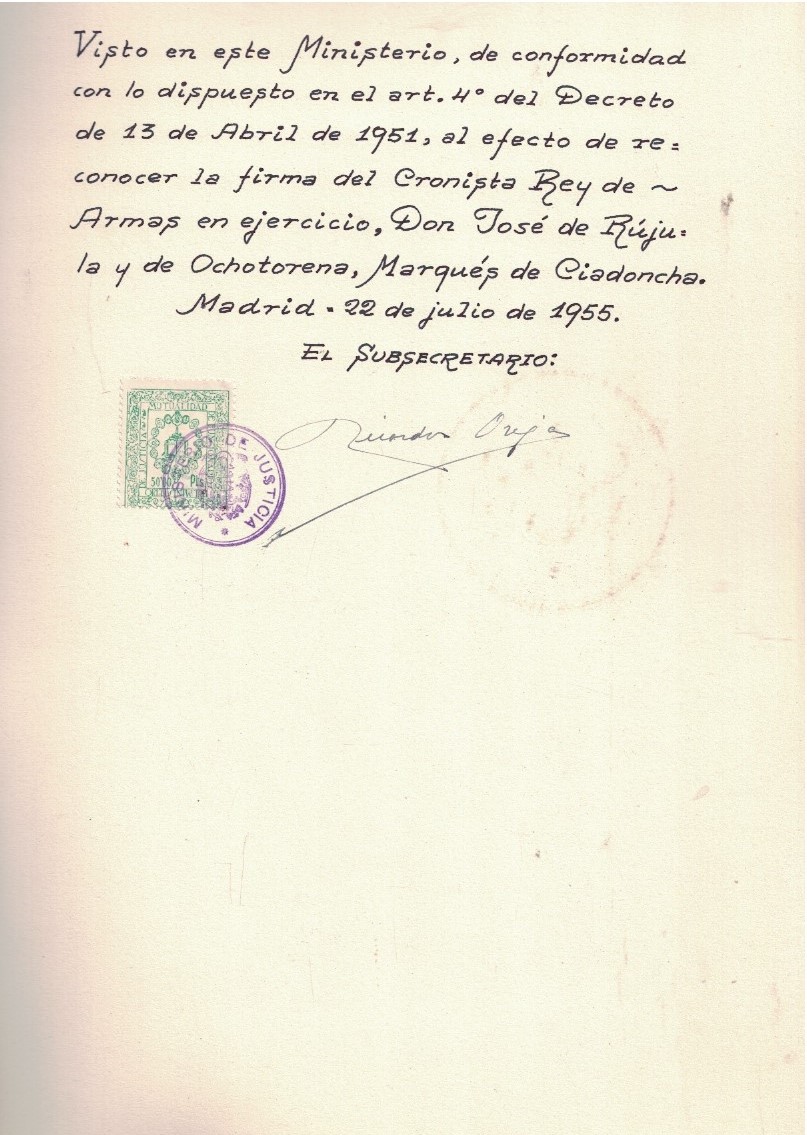 Visto en este Ministerio, de conformidad
con lo dispuesto en el art. 4º del Decreto
de 13 de Abril de 1951, al efecto de re=
conocer la firma del Cronista Rey de ~
Armas en ejercicio, Don José de Rúju=
la y de Ochotorena, Marqués de Ciadoncha.
Madrid - 22 de julio de 1955.
EL SUBSECRETARIO:
Ricardo Oreja
MUTUALIDAD
MINISTERIO DE JUSTICIA